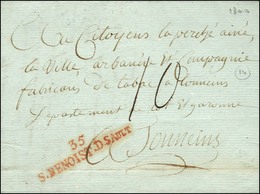 Aux Citoyens la perche ainé,
la Ville, arbanere et Compagnie
fabricans de tabac a tonneins
departement de lot et garonne
10
A Tonneins
35
S.BENOIST.D.SAULT